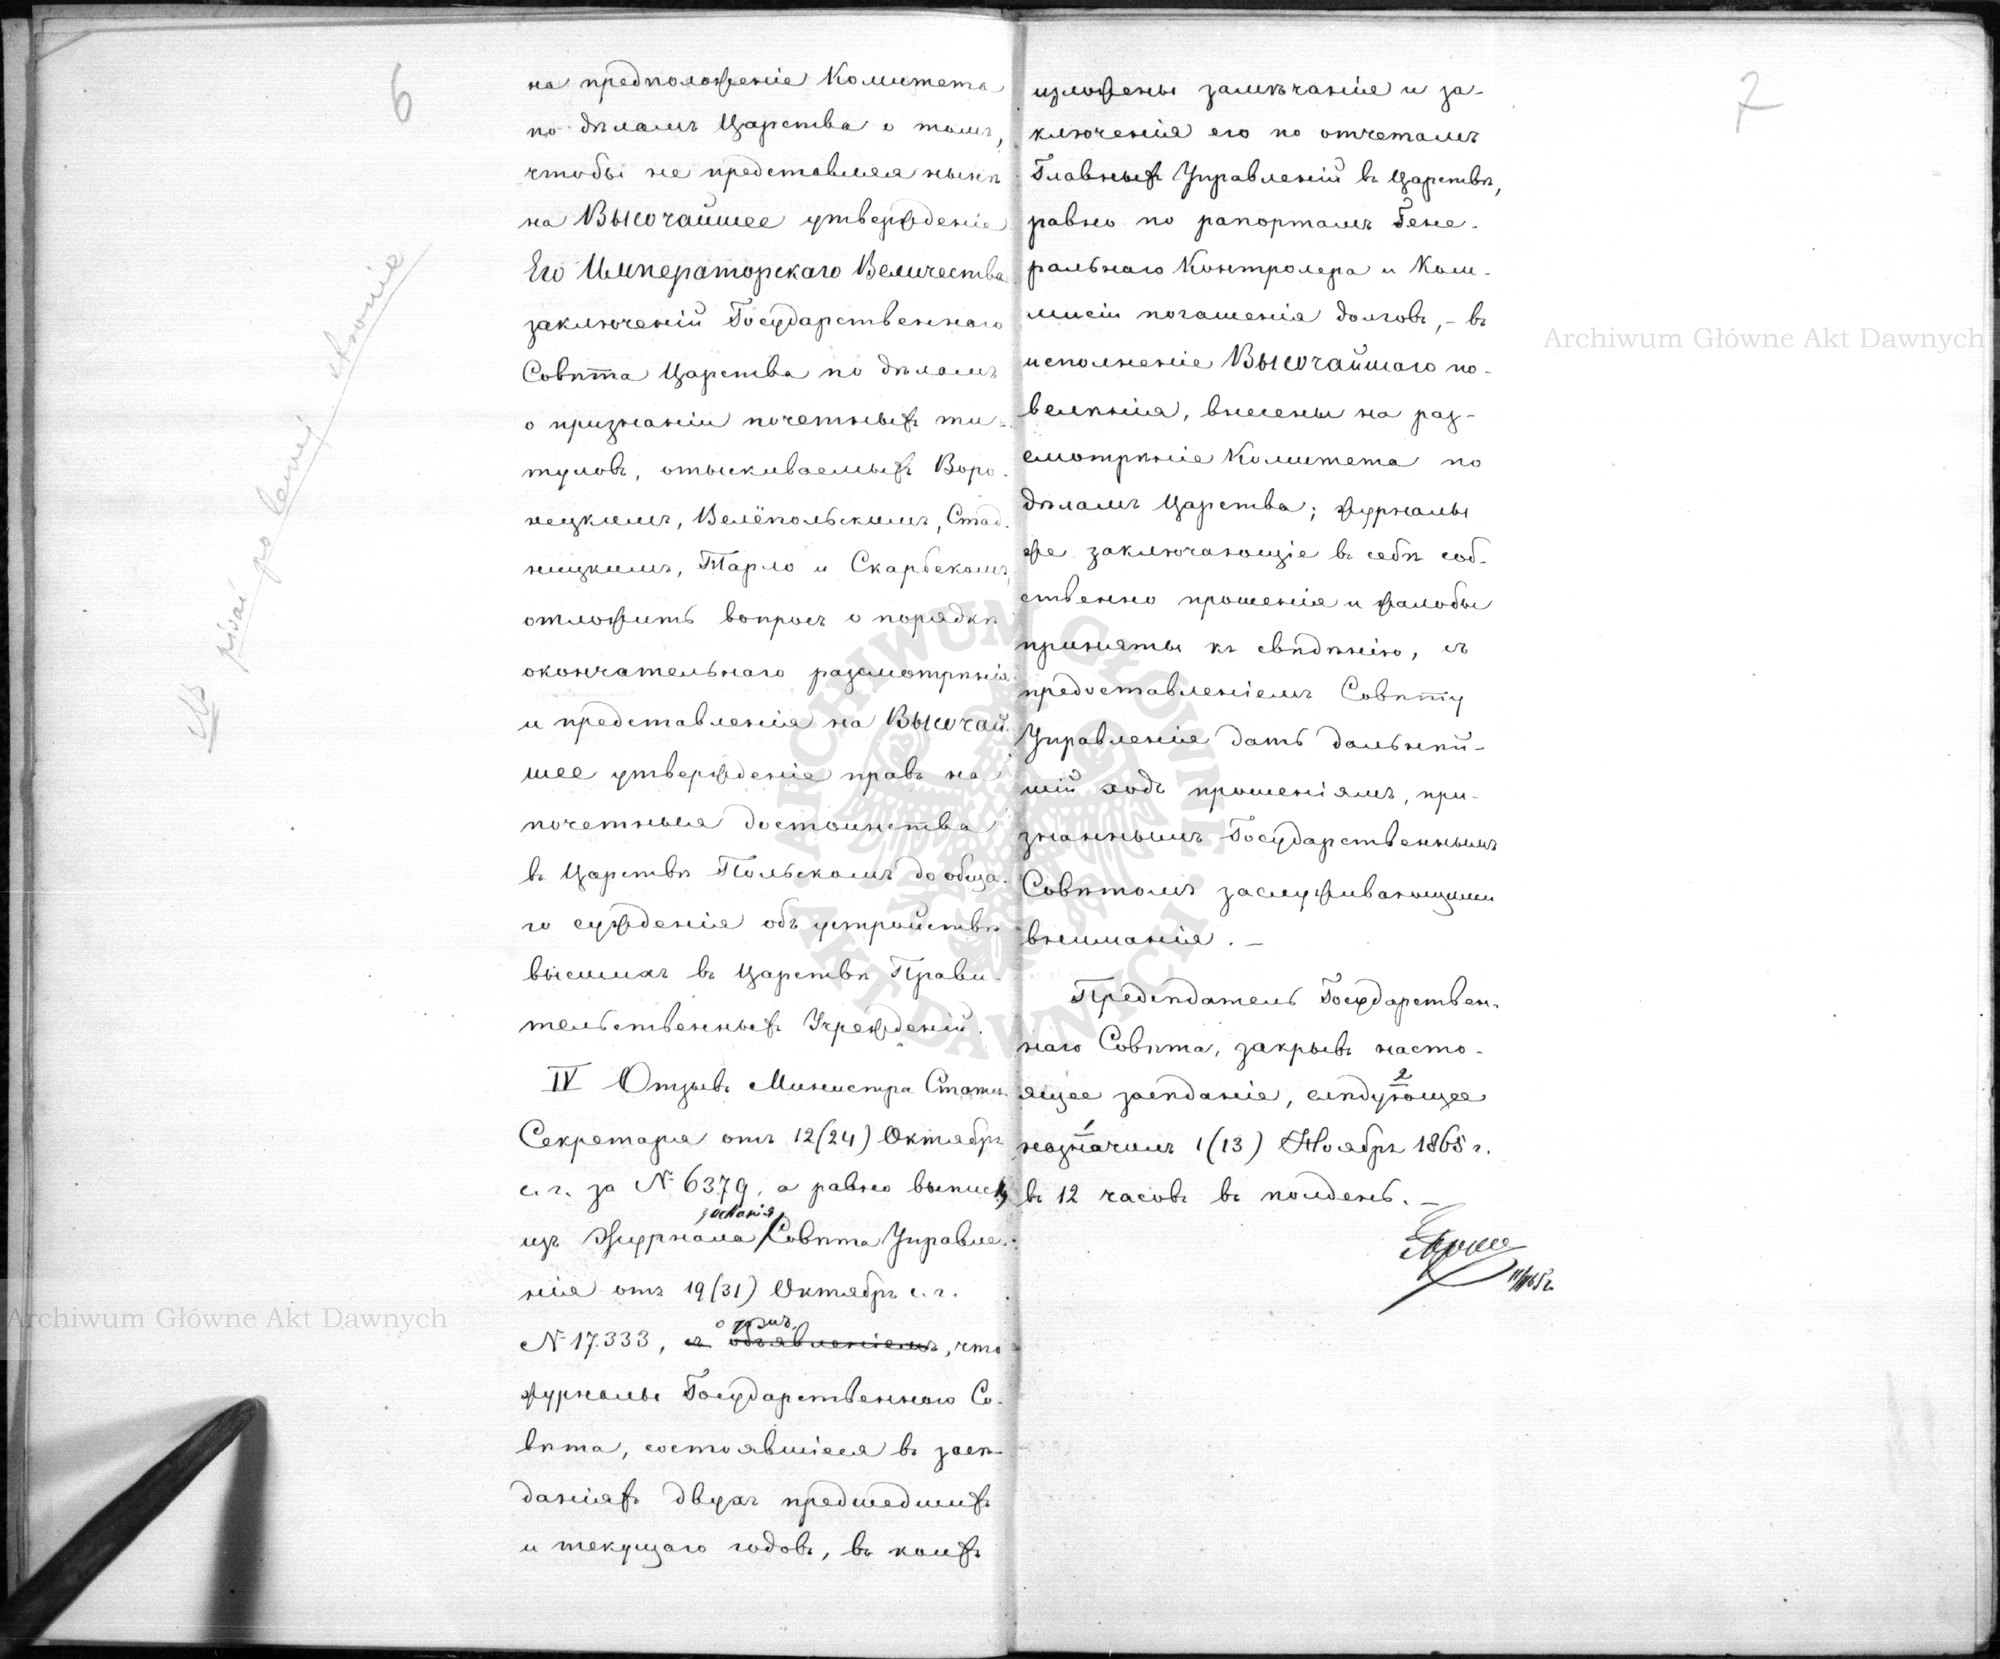 6
на предположеніе Комитета
по дѣламъ Царства о томъ,
чтобы не представляя нынѣ
на Высочайшее утвержденіе
Его Императорскаго Величества
заключеній Государственнаго
Совѣта Царства по дѣламъ
о признаніи почетныхъ ти-
туловъ, отыскиваемыхъ Воро-
нецкимъ, Велёпольскимъ, Стад-
ницкимъ, Тарло и Скарбекомъ,
отложить вопросъ о порядкѣ
окончательнаго разсмотрѣнія
и представленія на Высочай-
шее утвержденіе правъ на
почетныя достоинства
въ Царствѣ Польскомъ до обща-
го сужденія объ устройствѣ
высшихъ въ Царствѣ Прави-
тельственныхъ Учрежденій.
IV Отзывъ Министра Статсъ
Секретаря отъ 12(24) Октября
с. г. за № 6379, а равно выписку
изъ Журнала засѣданія Совѣта Управле-
нія отъ 19(31) Октября с. г.
№ 17.333, съ объявленіемъ, что
о томъ,
журналы Государственнаго Со-
вѣта, состоявшіеся въ засѣ-
даніяхъ двухъ предшедшихъ
и текущаго годовъ, въ коихъ
NB pisać po lewej stronie
7
изложены замѣчанія и за-
ключенія его по отчетамъ
Главныхъ Управленій въ Царствѣ,
равно по рапортамъ Гене-
ральнаго Контролера и Ком-
мисіи погашенія долговъ, – въ
исполненіе Высочайшаго по-
велѣнія, внесены на раз-
смотрѣніе Комитета по
дѣламъ Царства; журналы
же заключающіе въ себѣ соб-
ственно прошенія и жалобы
приняты къ свѣдѣнію, съ
предоставленіемъ Совѣту
Управленія дать дальнѣй-
шій ходъ прошеніямъ, при-
знаннымъ Государственнымъ
Совѣтомъ заслуживающими
вниманія. –
Предсѣдатель Государствен-
наго Совѣта, закрывъ насто-
ящее засѣданіе, слѣдующее
2
назначилъ 1(13) Ноября 1865 г.
1
въ 12 часовъ въ полдень. –
Archiwum Główne Akt Dawnych
Archiwum Główne Akt Dawnych
ARCHIWUM GŁÓWNE AKT DAWNYCH